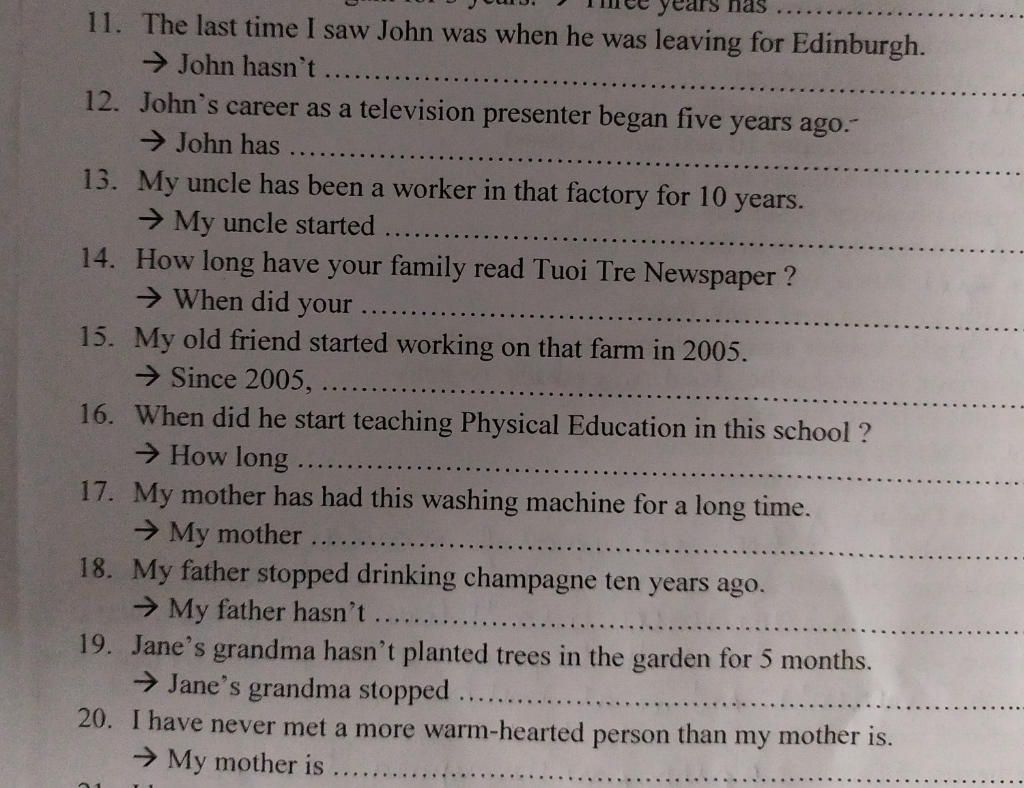 Three years has ..................
11. The last time I saw John was when he was leaving for Edinburgh.
→ John hasn't ..................
12. John's career as a television presenter began five years ago.
→ John has ..................
13. My uncle has been a worker in that factory for 10 years.
→ My uncle started ..................
14. How long have your family read Tuoi Tre Newspaper ?
→ When did your ..................
15. My old friend started working on that farm in 2005.
→ Since 2005, ..................
16. When did he start teaching Physical Education in this school ?
→ How long ..................
17. My mother has had this washing machine for a long time.
→ My mother ..................
18. My father stopped drinking champagne ten years ago.
→ My father hasn't ..................
19. Jane's grandma hasn't planted trees in the garden for 5 months.
→ Jane's grandma stopped ..................
20. I have never met a more warm-hearted person than my mother is.
→ My mother is ..................